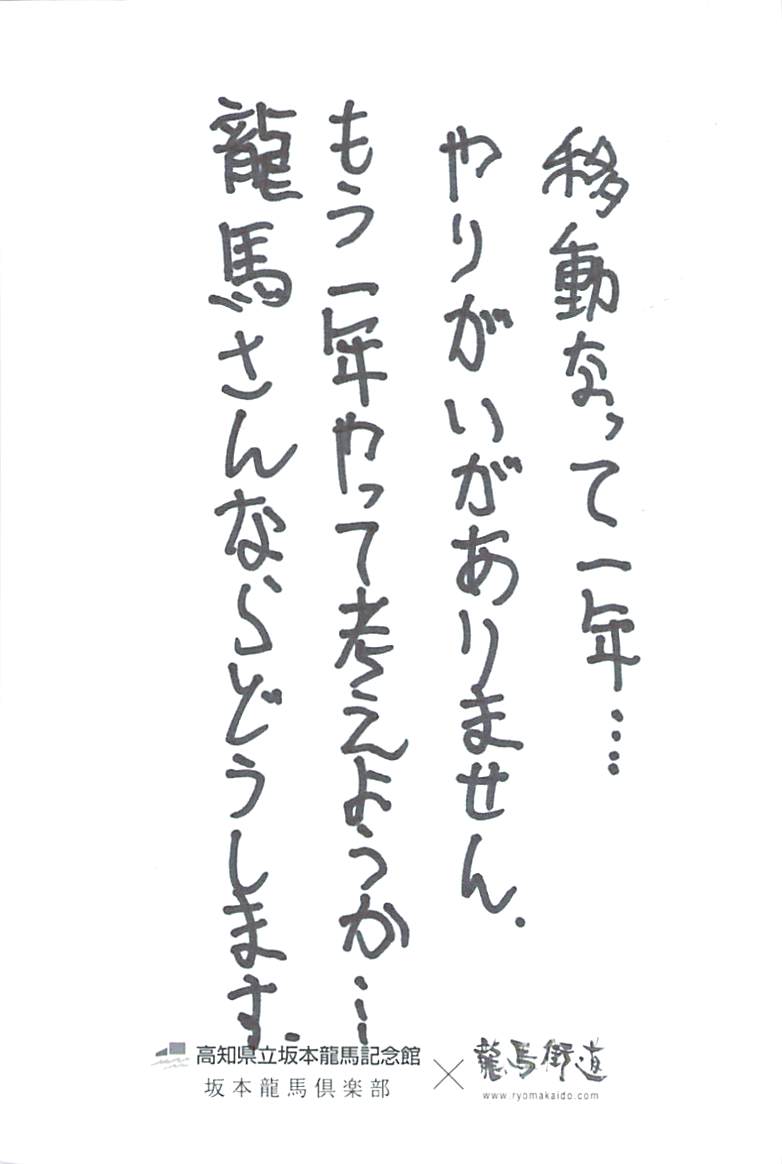 移動なって一年…
やりがいがありません.
もう一年やって考えようか…
龍馬さんならどうします.
高知県立坂本龍馬記念館
坂本龍馬倶楽部
×
龍馬街道
www.ryomakaido.com